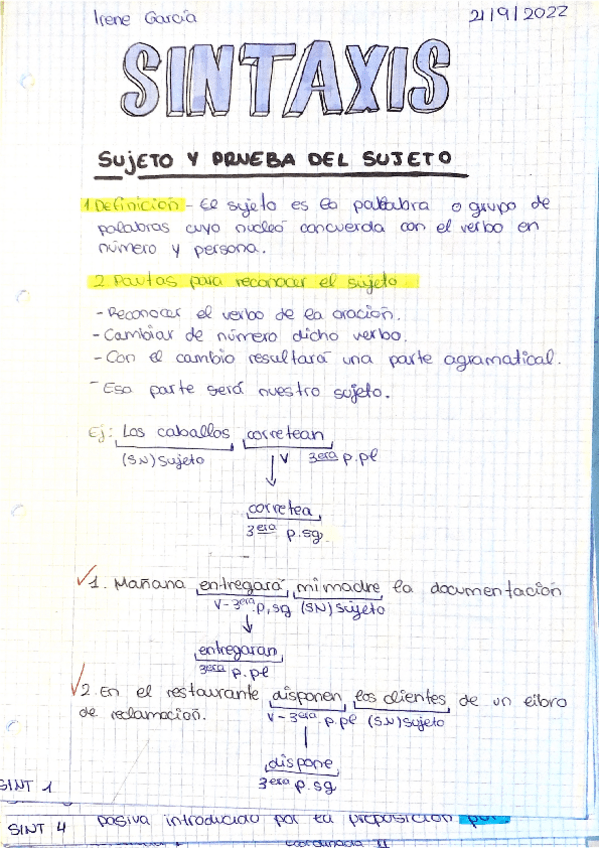 Irene García
21/9/2022
SINTAXIS
SUJETO Y PRUEBA DEL SUJETO
1 Definición - El sujeto es la palabra o grupo de
palabras cuyo nucleo concuerda con el verbo en
número y persona.
2. Pautas para reconocer el sujeto.
- Reconocer el verbo de la oración.
- Cambiar de número dicho verbo.
- Con el cambio resultará una parte agramatical.
- Esa parte será nuestro sujeto.
Ej: Los caballos corretean
(SN) Sujeto V 3era p.pl
corretea
3era p.sg.
1. Mañana entregará mi madre la documentación
V-3era p,sg (SN) Sujeto
entregaran
3era p.pl
2. En el restaurante disponen los clientes de un libro
de reclamación. V-3era p.pl (SN) Sujeto
dispone
3era p.sg
SINT 1
SINT 4 pasiva introducido por la preposición por
coordinada